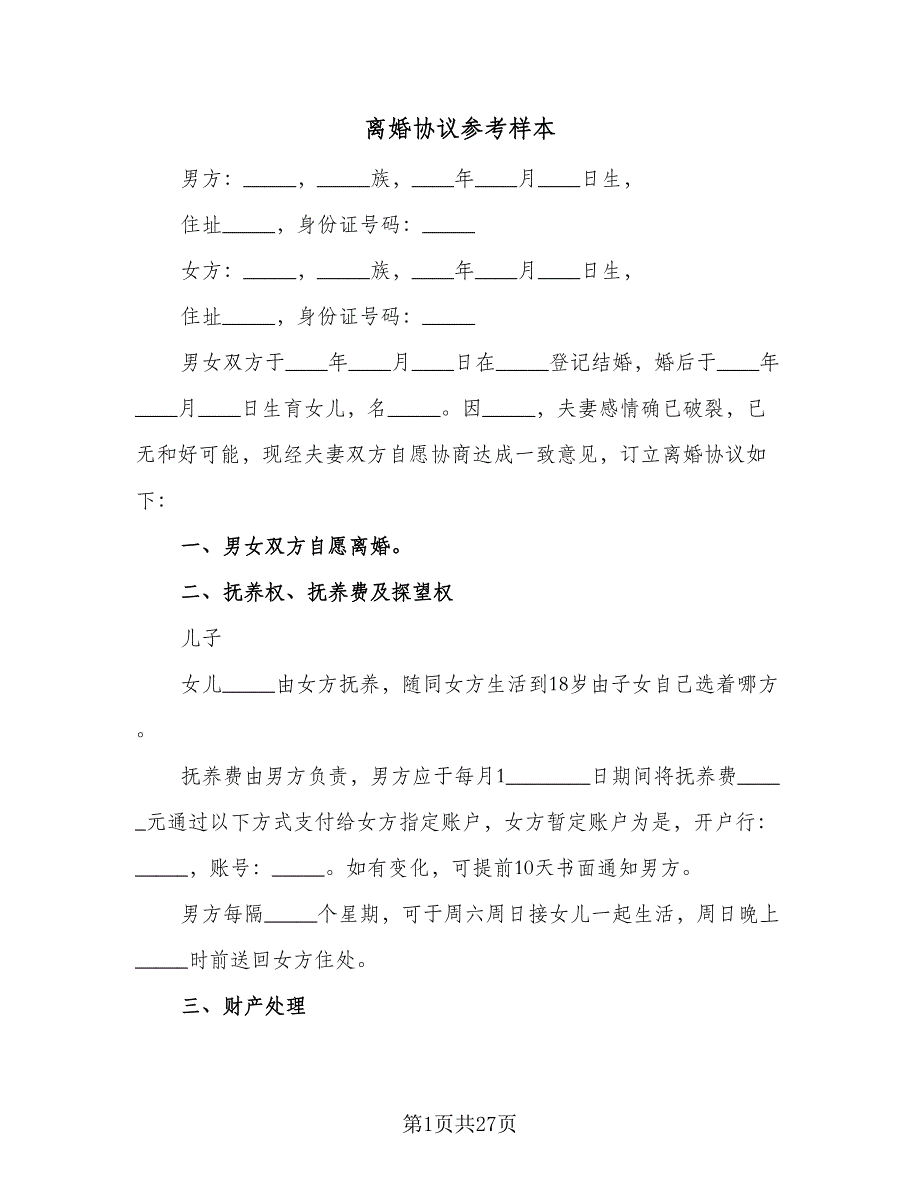 离婚协议参考样本
男方：_____，_____族，____年____月____日生，
住址_____，身份证号码：_____
女方：_____，_____族，____年____月____日生，
住址_____，身份证号码：_____
男女双方于____年____月____日在_____登记结婚，婚后于____年
____月____日生育女儿，名_____。因_____，夫妻感情确已破裂，已
无和好可能，现经夫妻双方自愿协商达成一致意见，订立离婚协议如
下：
一、男女双方自愿离婚。
二、抚养权、抚养费及探望权
儿子
女儿_____由女方抚养，随同女方生活到18岁由子女自己选着哪方
。
抚养费由男方负责，男方应于每月1________日期间将抚养费____
_元通过以下方式支付给女方指定账户，女方暂定账户为是，开户行：
_____，账号：_____。如有变化，可提前10天书面通知男方。
男方每隔_____个星期，可于周六周日接女儿一起生活，周日晚上
_____时前送回女方住处。
三、财产处理
第1页共27页